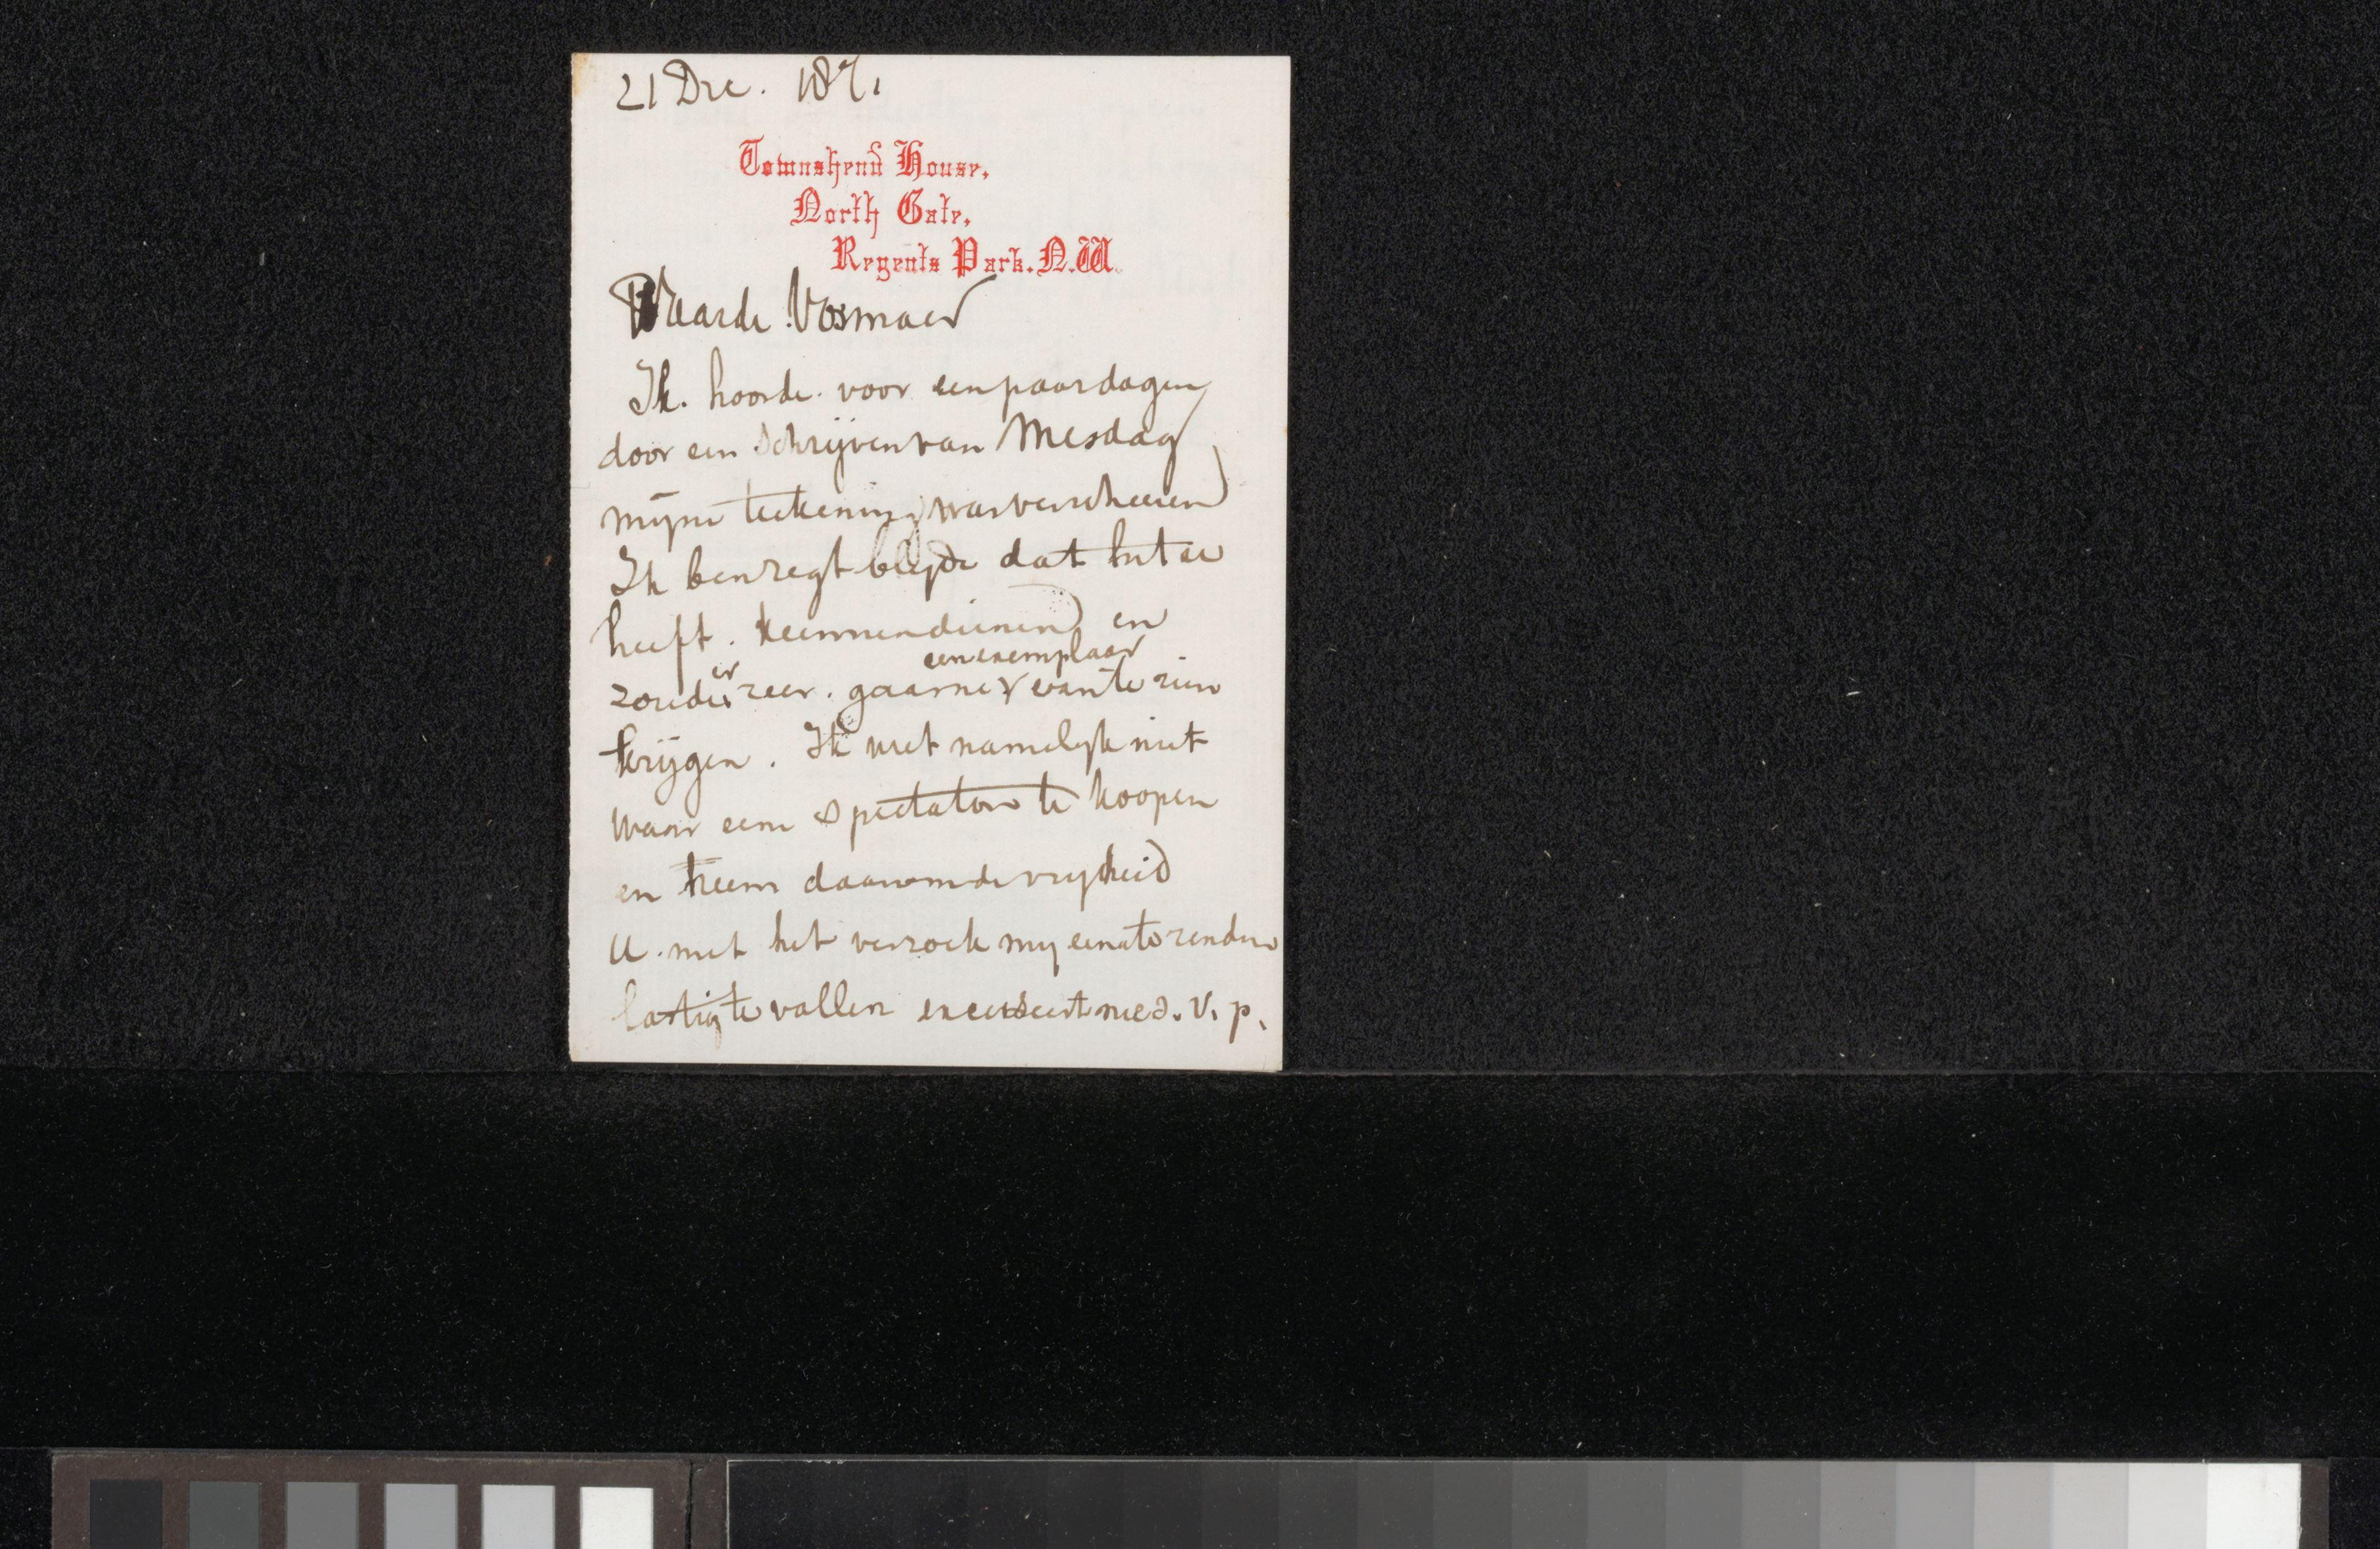 21 Dec. 1871
Townshend House,
North Gate,
Regents Park. N.W.
Waarde Vosmaer
Ik hoorde voor een paar dagen
door een schrijven van Mesdag
mijne teekening was verscheenen
Ik ben regt blyde dat het er
heeft kunnen dienen en
zoude er zeer gaarne een exemplaar van te zien
krijgen. Ik weet namelyk niet
waar eene Spectator te koopen
en neem daarom de vryheid
U met het verzoek my eene te zenden
lastig te vallen s.v.p.